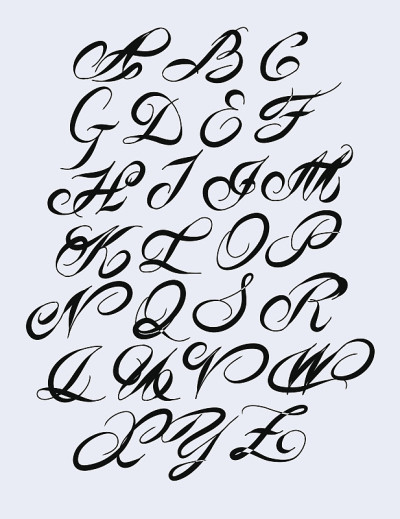 A B C
G D E F
H J I M
K L O P
N Q S R
T U V W
X Y Z